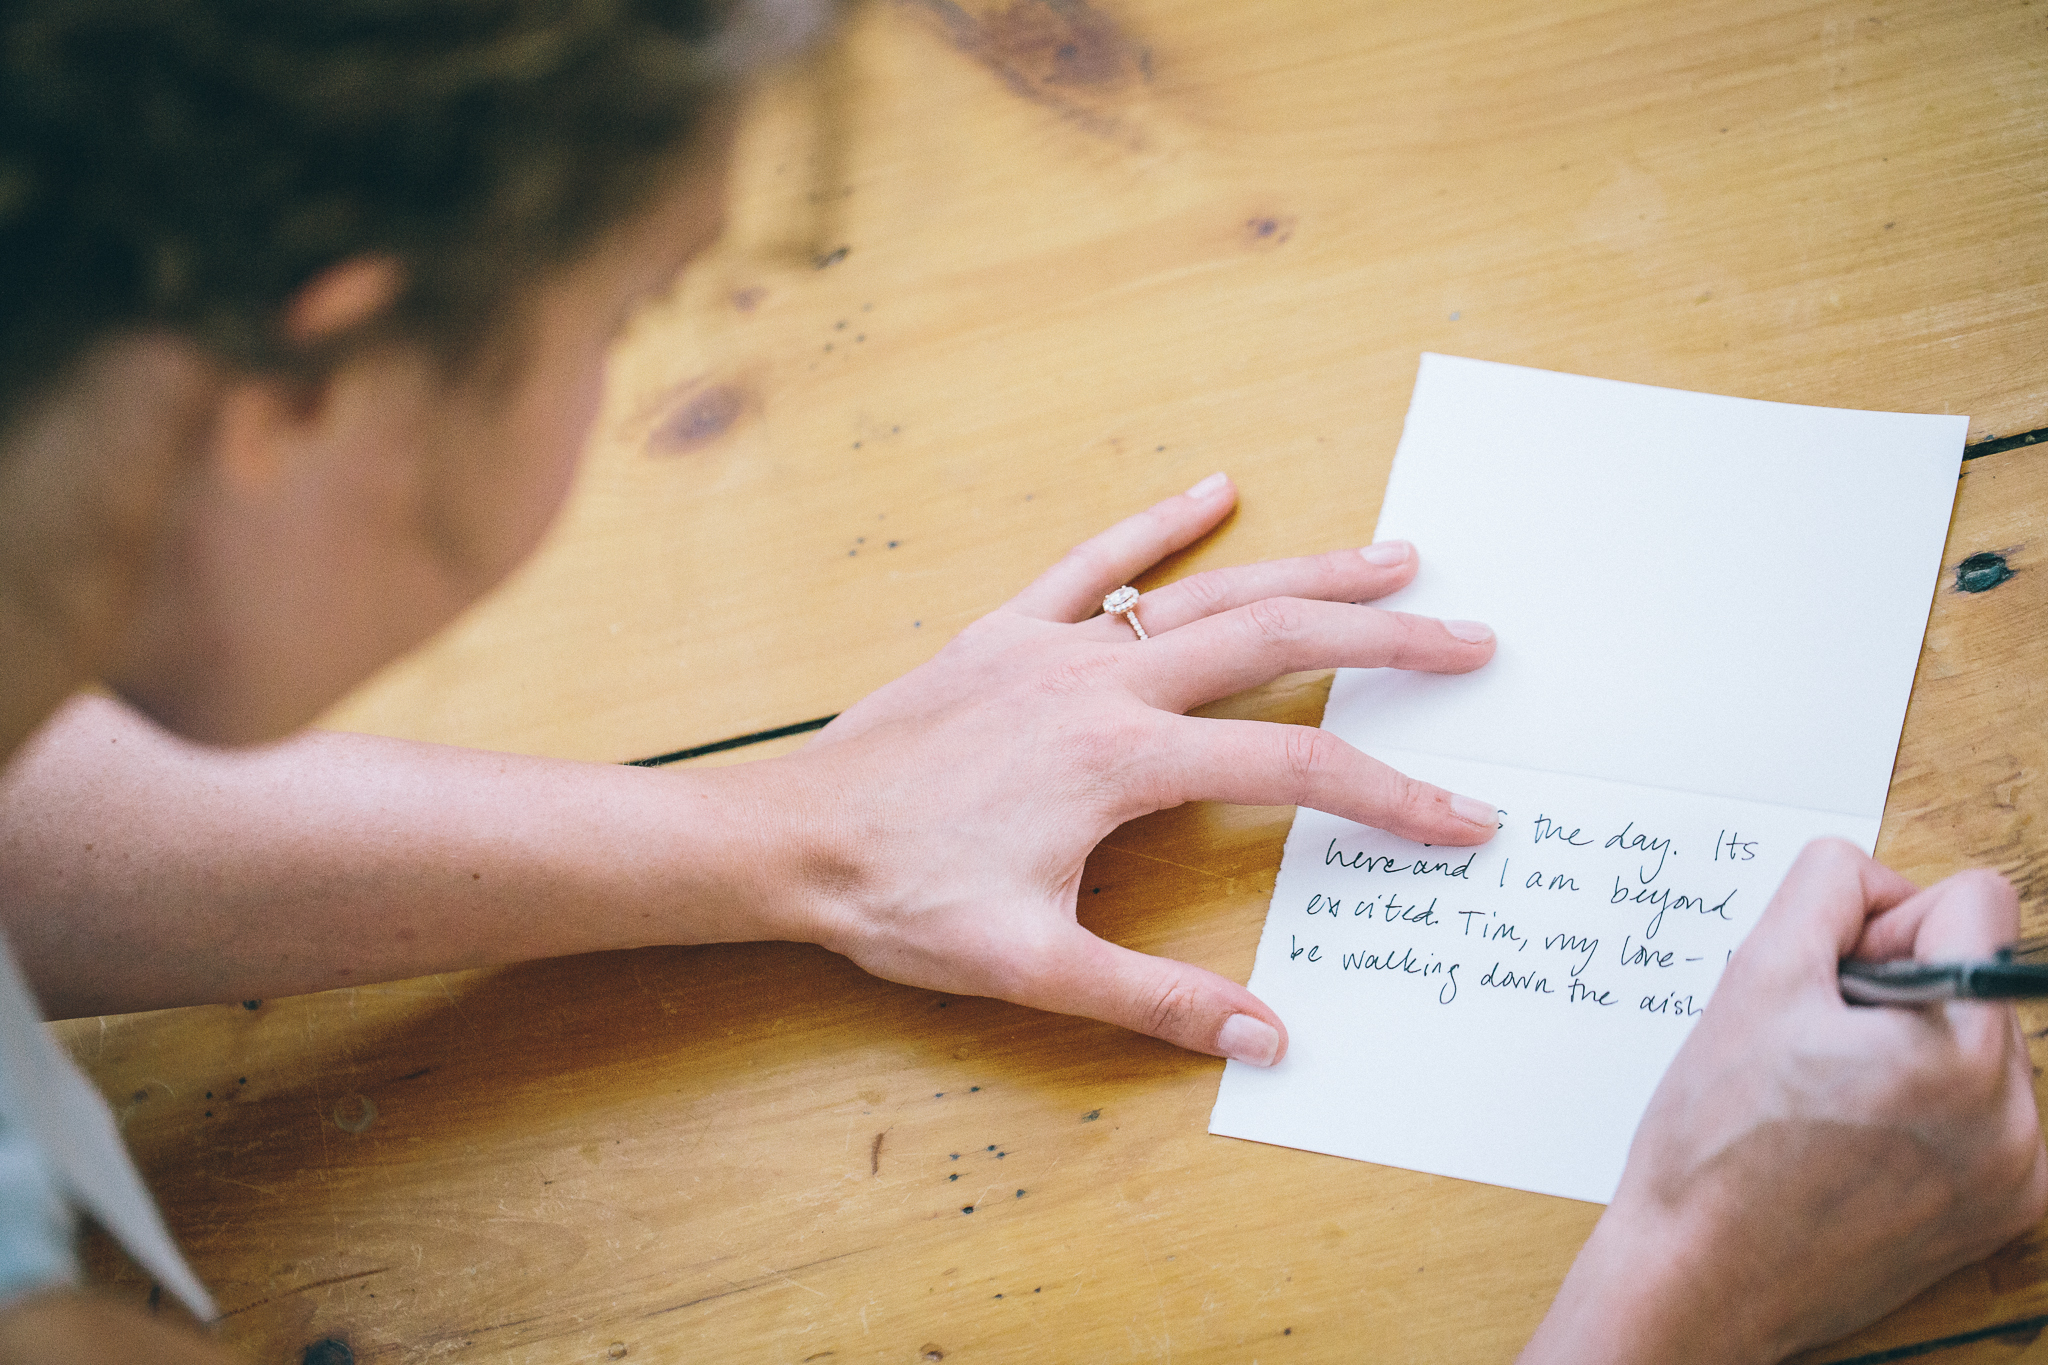 the day. Its
here and I am beyond
excited. Tim, my love -
be walking down the aisl